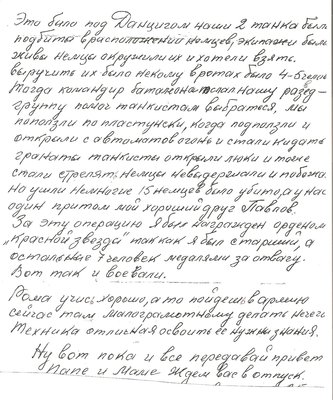 Это было под Данцигом наши 2 танка были
подбиты в расположении немцев, экипажи были
живы немцы окружили их и хотели взять.
выручить их было некому в ротах было 4-5 человек
Тогда командир батальона послал нашу развед-
группу помоч танкистам выбраться, мы
поползли по пластунски, когда подползли и
открыли с автоматов огонь и стали кидать
гранаты танкисты открыли люки и тоже
стали стрелять, немцы невыдержали и побежа.
Но ушли немногие 15 немцев было убито, а у нас
один притом мой хороший друг Павлов.
За эту операцию я был награжден орденом
„Красной звезды" так как я был старший, а
остальные 7 человек медалями за отвагу.
Вот так и воевали.
Рома учись хорошо, а то пойдешь в армию
сейчас там, малограмотному делать нечего
Техника отличная освоить ее нужны знания.
Ну вот пока и все передавай привет
Папе и Маме ждем вас в отпуск.